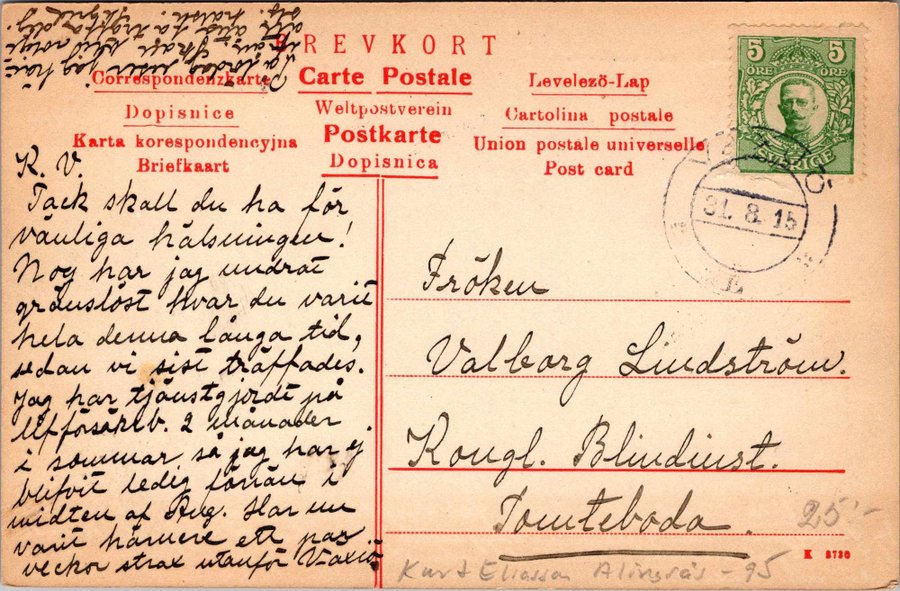 BREVKORT
Correspondenzkarte
Carte Postale
Levelező-Lap
Dopisnice
Weltpostverein
Cartolina postale
Karta korespondencyjna
Postkarte
Union postale universelle
Briefkaart
Dopisnica
Post card
5 5
ÖRE ÖRE
SVERIGE
31. 8. 15
K. V.
Tack skall du ha för
vänliga hälsningen!
Nog har jag undrat
gränslöst hvar du varit
hela denna långa tid,
sedan vi sist träffades.
Jag har tjänstgjordt på
Uffförsäkr.b. 2 månader
i sommar så jag har ej
blifvit ledig förrän i
midten af Aug. Har nu
varit härnere ett par
veckor strax utanför Växiö
Fröken
Valborg Lindström.
Kongl. Blindinst.
Tomteboda.
25:-
K 3730
Kurt Eliasson Alingsås - 95